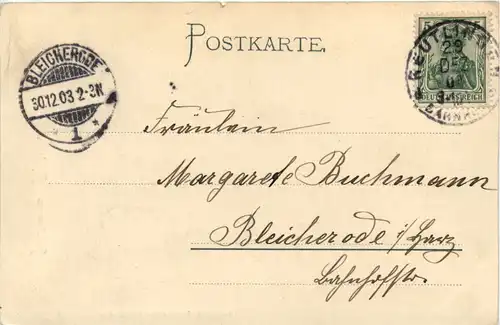 POSTKARTE.
BLEICHERODE
30.12.03 2-3N
* 1 *
REUTLINGEN
29
DEZ
03
BAHNHOF
5
DEUTSCHES REICH
Fräulein
Margarete Buchmann
Bleicherode i/Harz
Bahnhofstr.